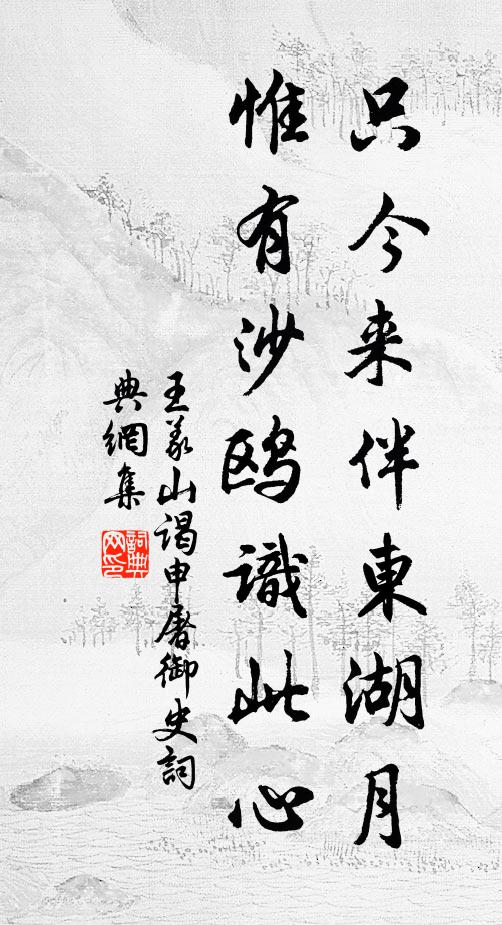 只今来伴東湖月
惟有沙鸥識此心
王义山谒申屠御史詞
典網集
詞典
网印